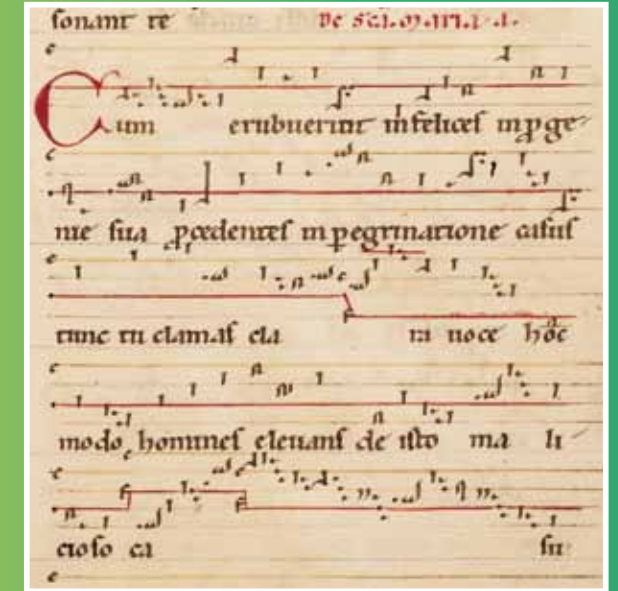 sonant re De sca maria a.
Cum erubuerint infelices in pge
nie sua pcedentes in peregrinatione casus
tunc tu clamas cla ra uoce hoc
modo homines eleuans de isto ma li
cioso ca su